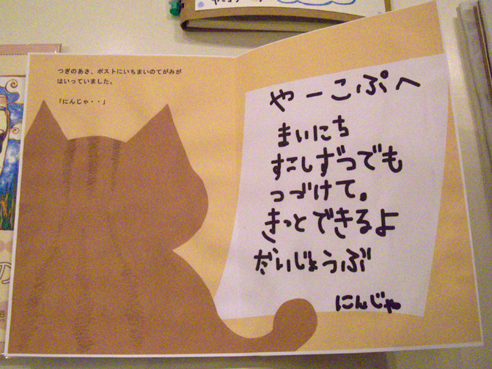 つぎのあさ、ポストにいちまいのてがみが
はいっていました。
「にんじゃ・・」
やーこぷへ
まいにち
すこしずつでも
つづけて。
きっとできるよ
だいじょうぶ
にんじゃ